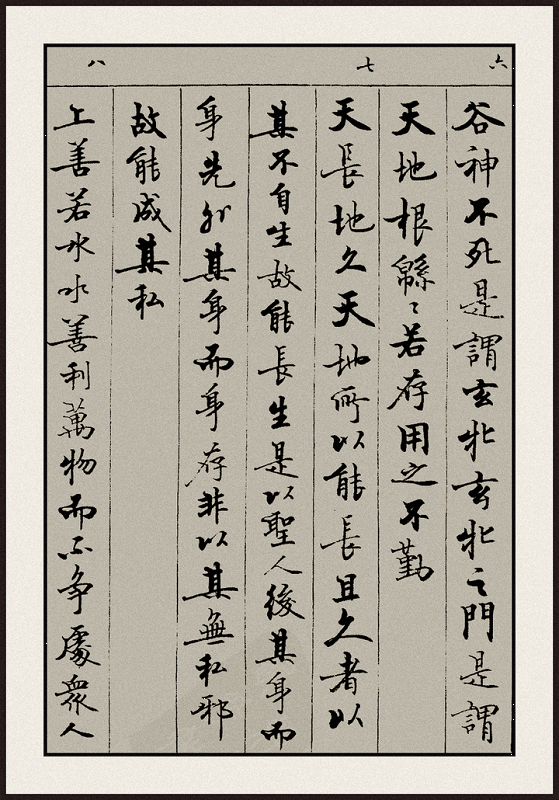 六
谷神不死是謂玄牝玄牝之門是謂
天地根緜〻若存用之不勤
七
天長地久天地所以能長且久者以
其不自生故能長生是以聖人後其身而
身先外其身而身存非以其無私邪
故能成其私
八
上善若水水善利萬物而不争處衆人